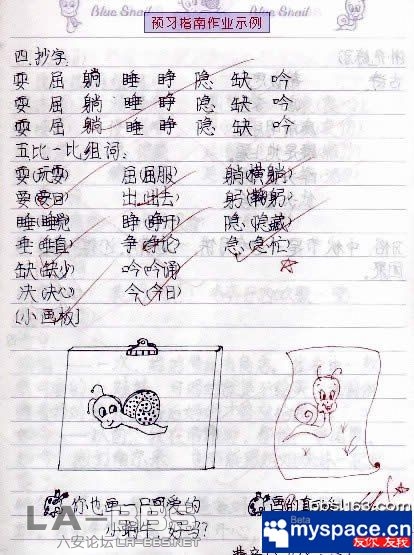 Blue Snail Blue Snail
预习指南作业示例
四.抄字:
耍 屈 躺 睡 睁 隐 缺 吟
耍 屈 躺 睡 睁 隐 缺 吟
耍 屈 躺 睡 睁 隐 缺 吟
五比一比组词:
耍(玩耍) 屈(屈服) 躺(横躺)
出(出去) 躬(鞠躬)
睡(睡觉) 睁(睁开) 隐(隐藏)
垂(垂直) 争(争论) 急(急忙)
缺(缺少) 吟(吟诵)
决(决心) 今(今日)
[小画板]
你也画一只可爱的
小蜗牛 好吗?
画的真可
LA-365
六安论坛LA-365.NET
bbs.163.com
Beta
myspace.cn
友你,友我